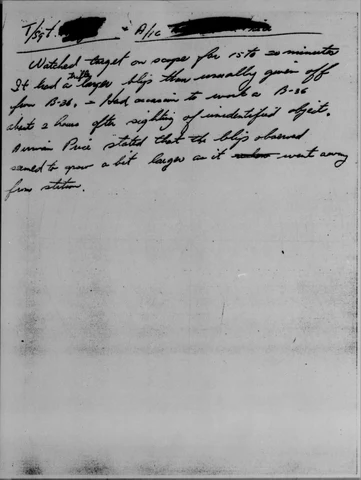 T/Sgt. + A/1C
Watched target on scope for 15 to 20 minutes
It had a little larger blip than usually given off
from B-36. - Had occasion to work a B-36
about 2 hours after sighting of unidentified object.
Airman Price stated that the blip observed
seemed to grow a bit larger as it went away
from station.